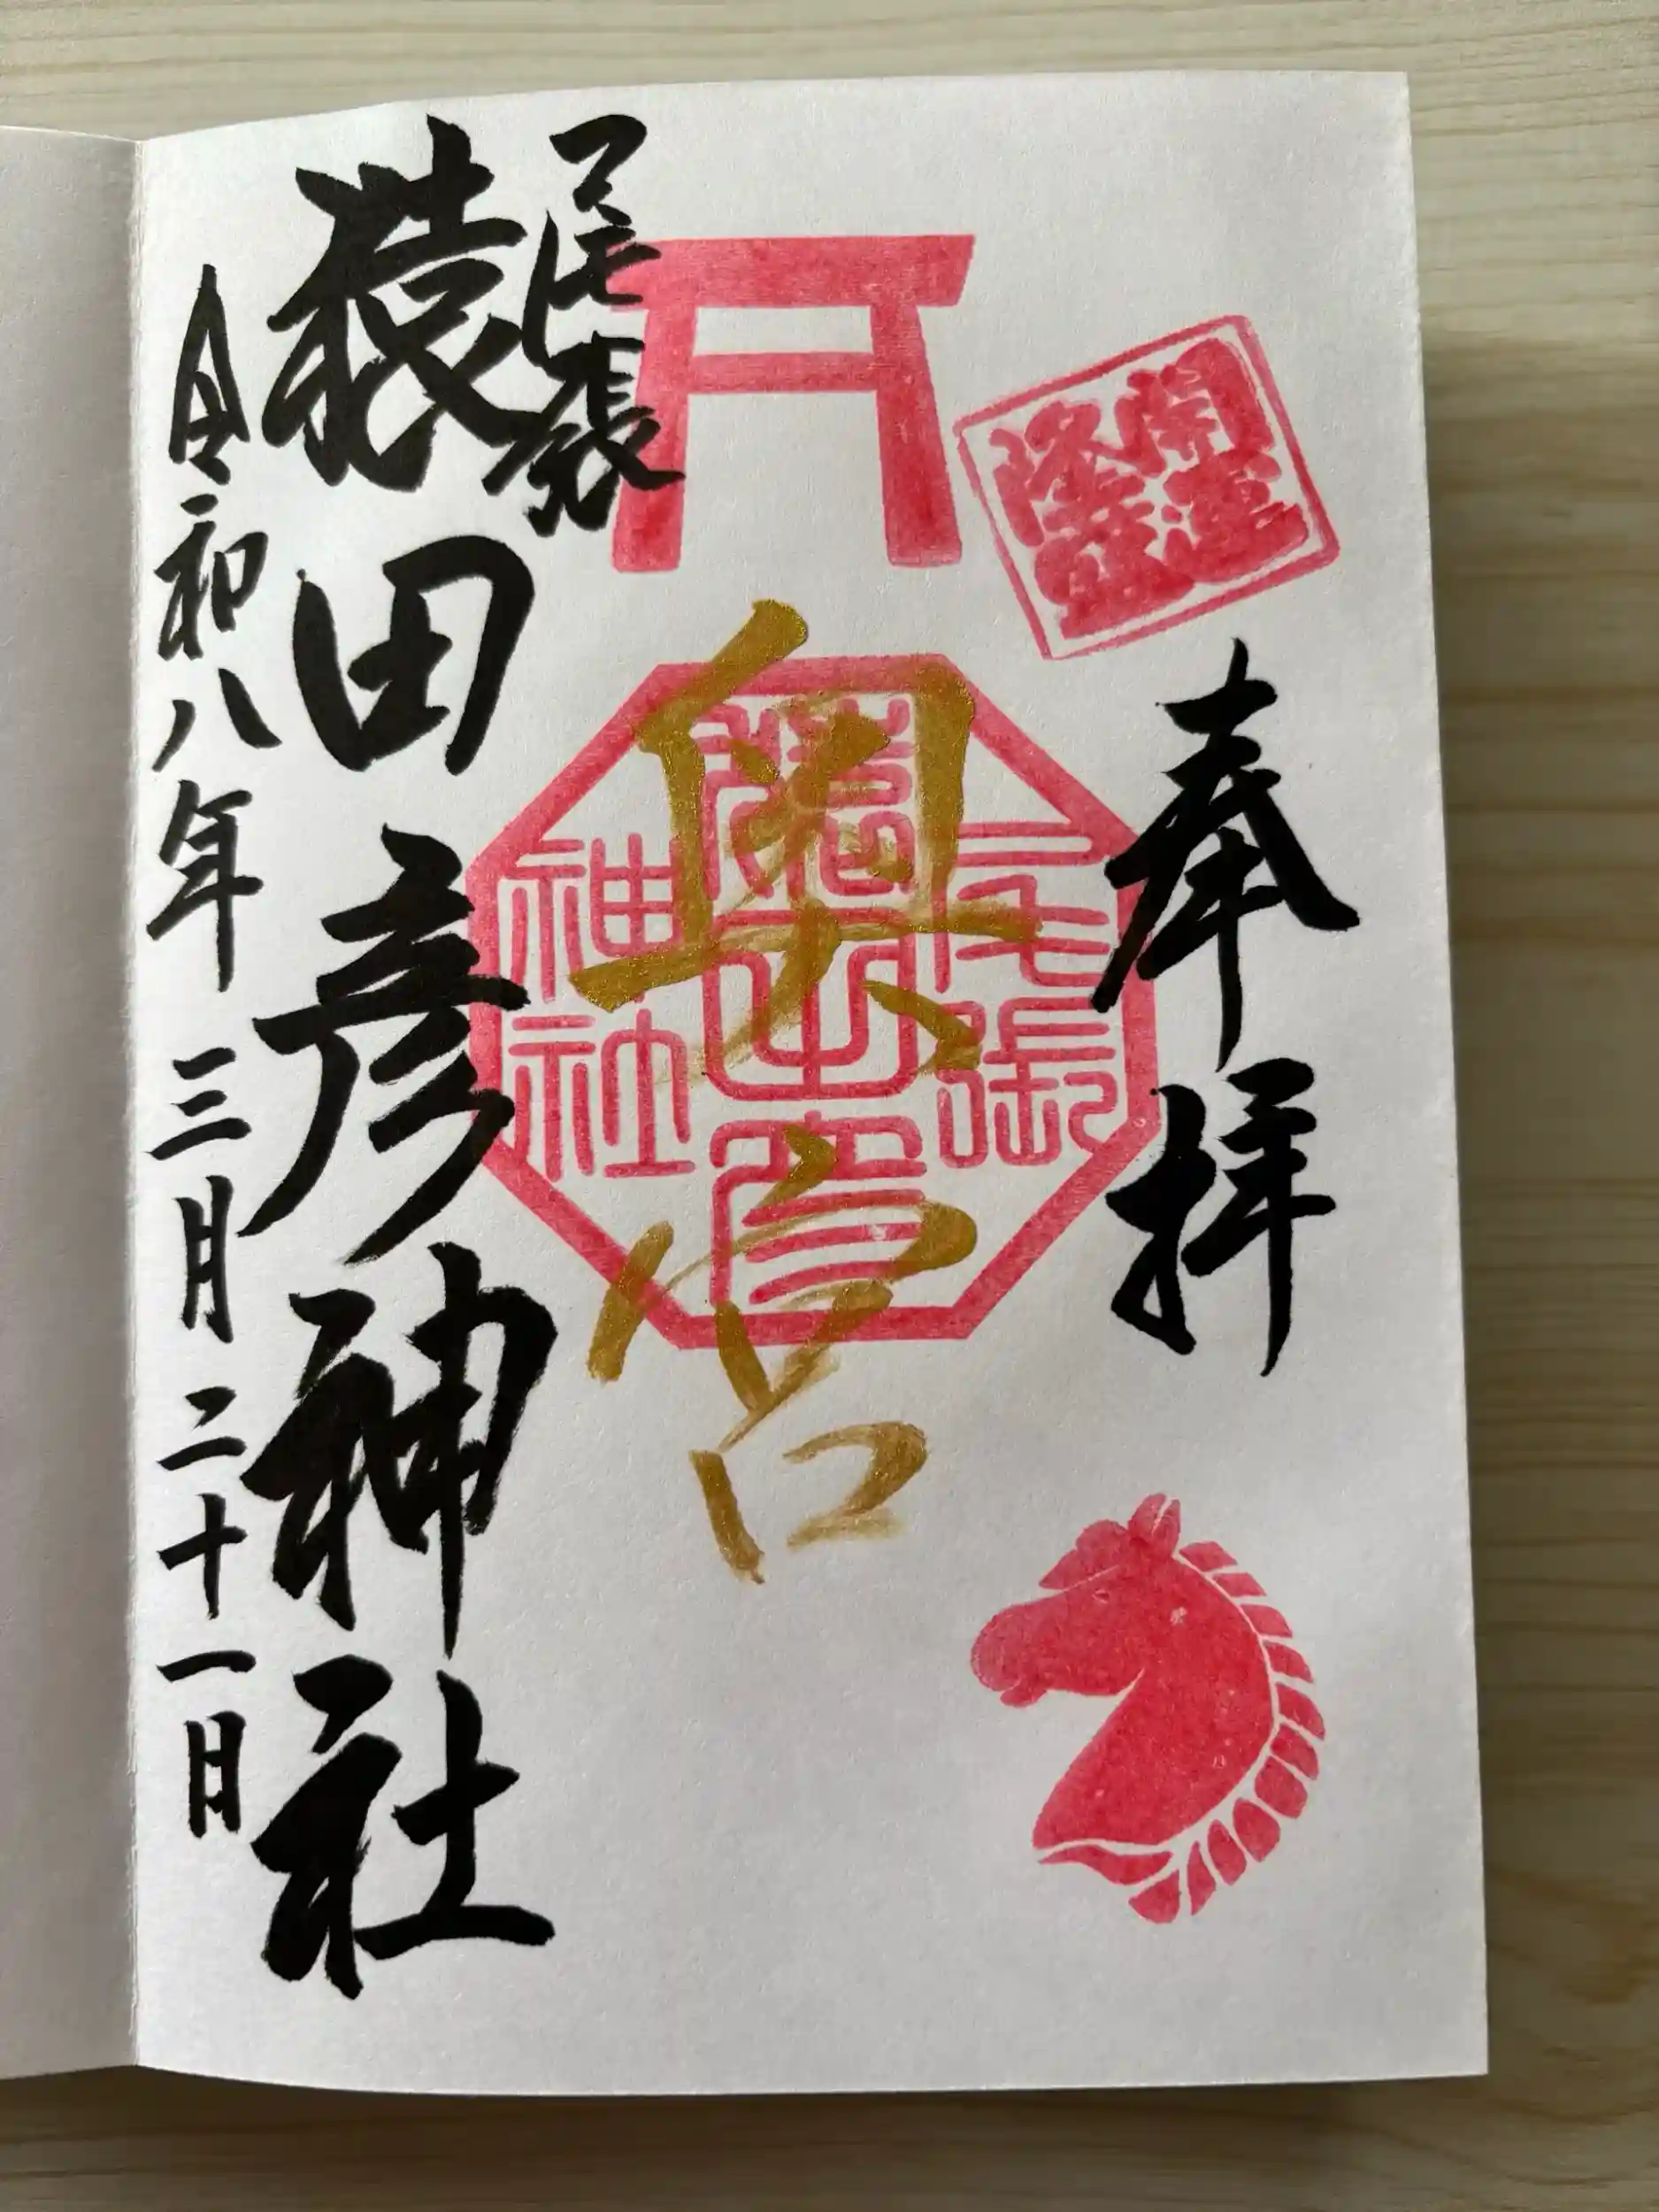 奉拝
開運
隆盛
奥宮
尾張
猿田彦
神社
尾張
猿田彦神社
令和八年三月二十一日